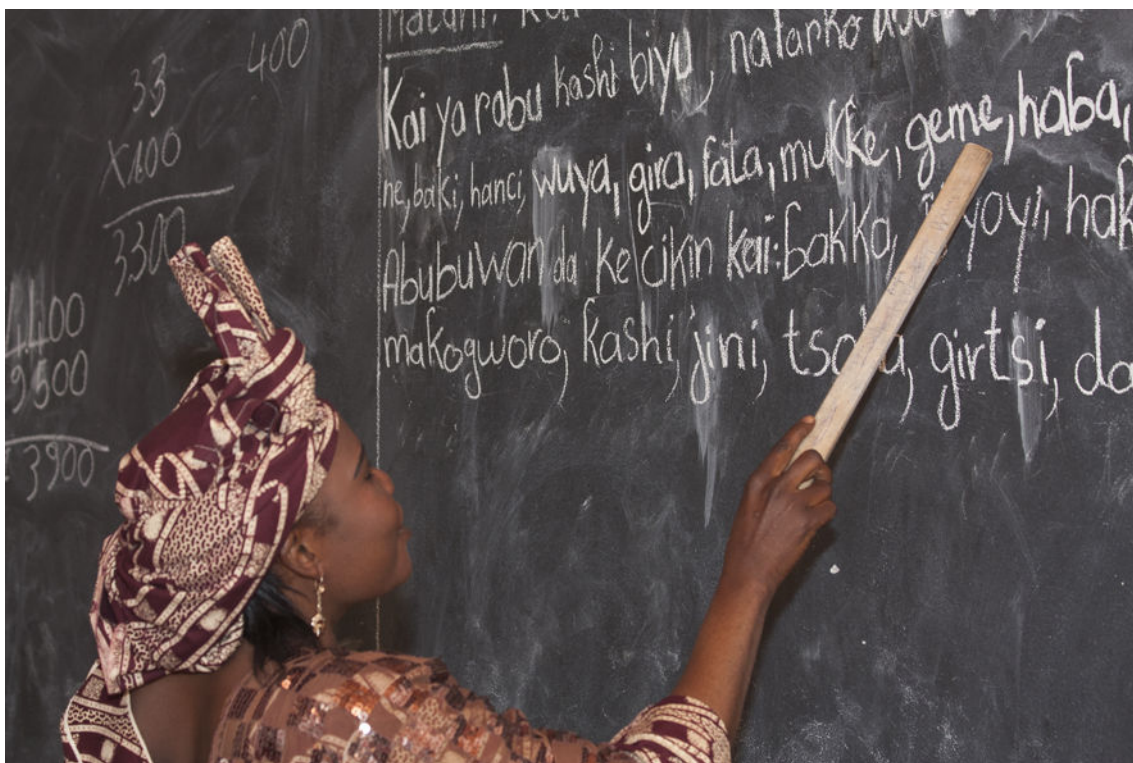 33
400
X100
3300
4400
9500
3900
Matani: Kai
Kai ya rabu kashi biyu, natarko
ne, baki, hanci, wuya, gira, fata, mukke, geme, haba,
Abubuwan da ke cikin kai: bakka,
makogworo, kashi, jini, girtsi, da